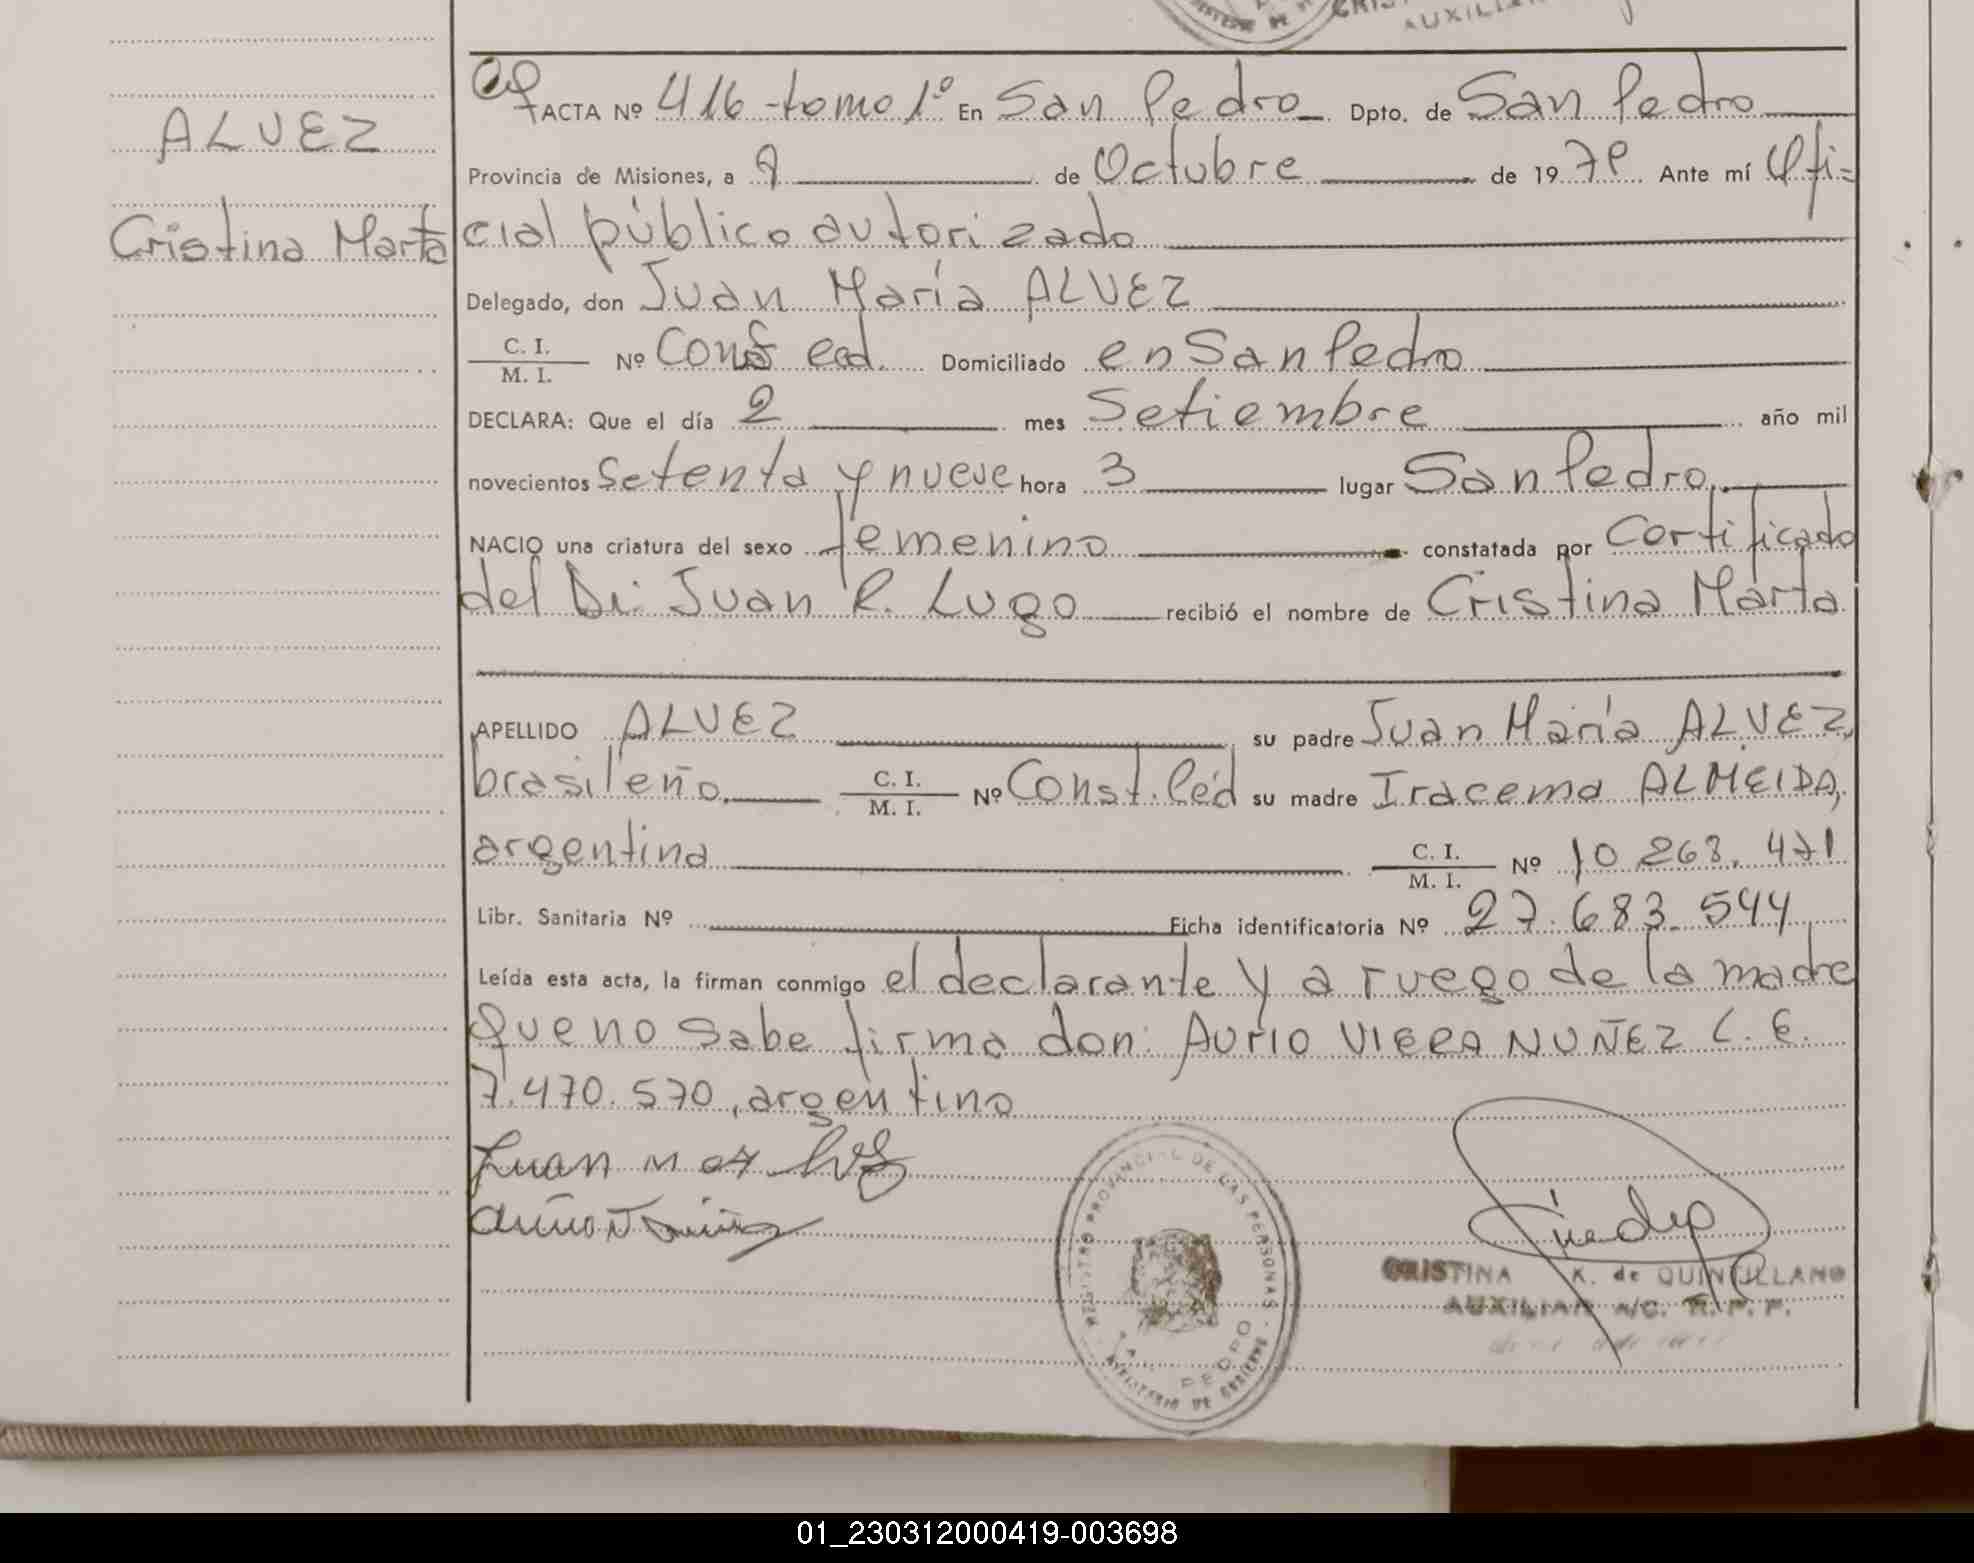 CRIS
AUXILIA
ALVEZ
Cristina Marta
ACTA Nº 416 -tomo 1º En San Pedro Dpto. de San Pedro
Provincia de Misiones, a 9 de Octubre de 1979 Ante mí Ofi=
cial público autorizado
Delegado, don Juan María ALVEZ
C. I. / M. I. Nº Domiciliado en San Pedro
DECLARA: Que el día 2 mes Setiembre año mil
novecientos setenta y nueve hora 3 lugar San Pedro
NACIO una criatura del sexo femenino constatada por Certificado
del Dr. Juan R. Lugo recibió el nombre de Cristina Marta
APELLIDO ALVEZ su padre Juan María ALVEZ,
brasileño, C. I. / M. I. Nº Const. Ced su madre Iracema ALMEIDA,
argentina C. I. / M. I. Nº 10 263. 471
Libr. Sanitaria Nº Ficha identificatoria Nº 27.683.544
Leída esta acta, la firman conmigo el declarante y a ruego de la madre
que no sabe firma don: AURIO VIERA NUÑEZ L. E.
7.470.570, argentino
Juan M
REGISTRO PROVINCIAL DE LAS PERSONAS
SAN PEDRO
MINISTERIO DE GOBIERNO
CRISTINA K. de QUINTILLANO
AUXILIAR A/C. R. P. P.
01_230312000419-003698